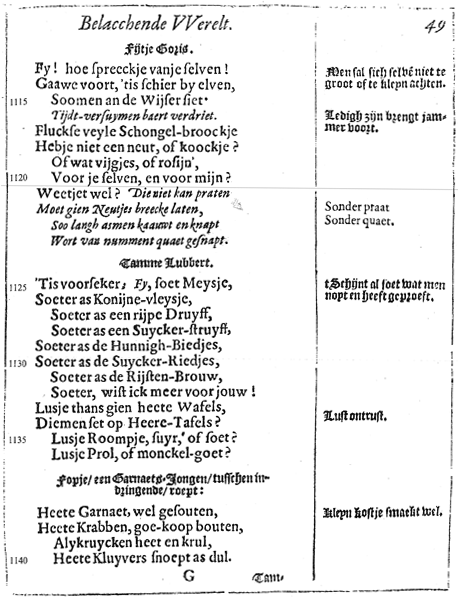 Belacchende VVerelt. 49
Fijtje Goris.
Fy! hoe spreeckje vanje selven!
Gaawe voort, 'tis schier by elven,
1115 Soomen an de Wijser siet.
Tijdt-versuymen baert verdriet.
Fluckse veyle Schongel-broockje
Hebje niet een neut, of koockje?
Of wat vijgjes, of rosijn,
1120 Voor je selven, en voor mijn?
Weetjet wel? Die niet kan praten
Moet gien Neutjes breecke laten,
Soo langh asmen kaauwt en knapt
Wort van numment quaet gesnapt.
Tamme Lubbert.
1125 'Tis voorseker; Fy, soet Meysje,
Soeter as Konijne-vleysje,
Soeter as een rijpe Druyff,
Soeter as een Suycker-struyff,
Soeter as de Hunnigh-Biedjes,
1130 Soeter as de Suycker-Riedjes,
Soeter as de Rijsten-Brouw,
Soeter, wist ick meer voor jouw!
Lusje thans gien heete Wafels,
Diemen set op Heere-Tafels?
1135 Lusje Roompje, suyr, of soet?
Lusje Prol, of monckel-goet?
Fopje/ een Garnaets-Jongen/ tusschen in-
dringende/ roept:
Heete Garnaet, wel gesouten,
Heete Krabben, goe-koop bouten,
Alykruycken heet en krul,
1140 Heete Kluyvers snoept as dul.
G Tam-
Men sal sich selbē niet te
groot ofte kleyn achten.
Ledigh zijn brengt jam-
mer voort.
Sonder praat
Sonder quaet.
tSchijnt al soet wat men
nopt en heeft geproeft.
Lust ontrust.
Kleyn kostje smaekt wel.